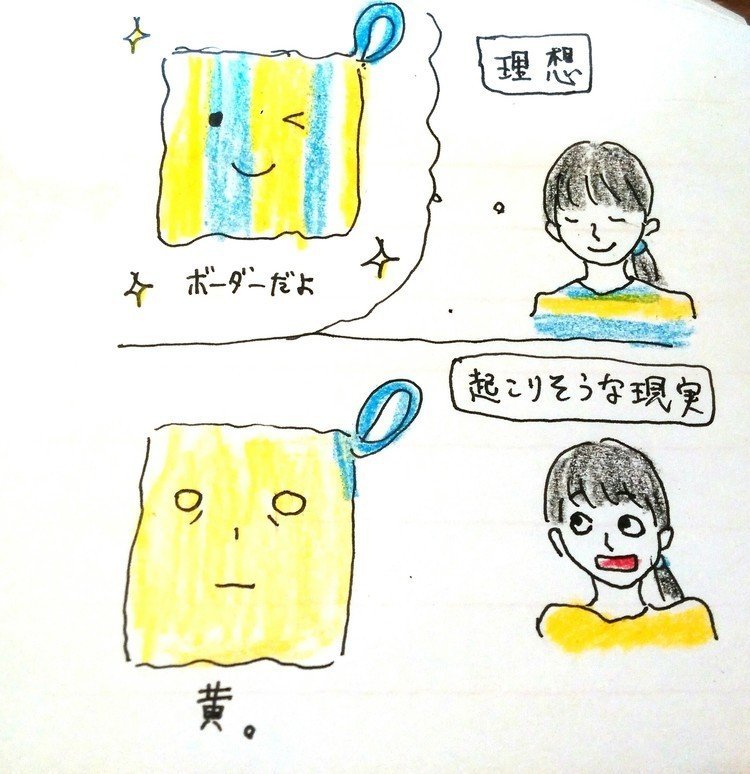 理想
ボーダーだよ
起こりそうな現実
黄。